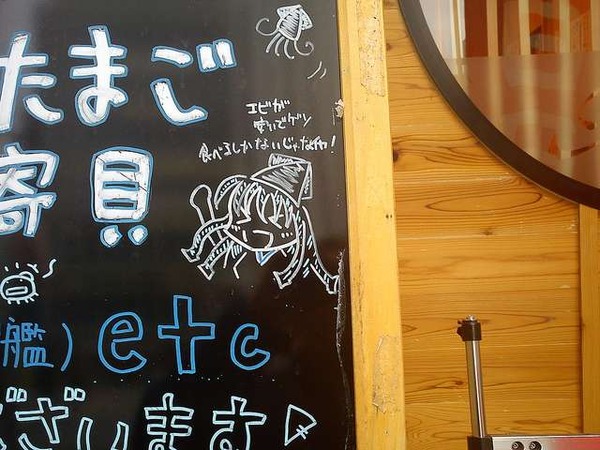 たまご
エビが
安いでゲソ
食べるしかないじゃなイカ!
寄貝
艦) etc
ございます